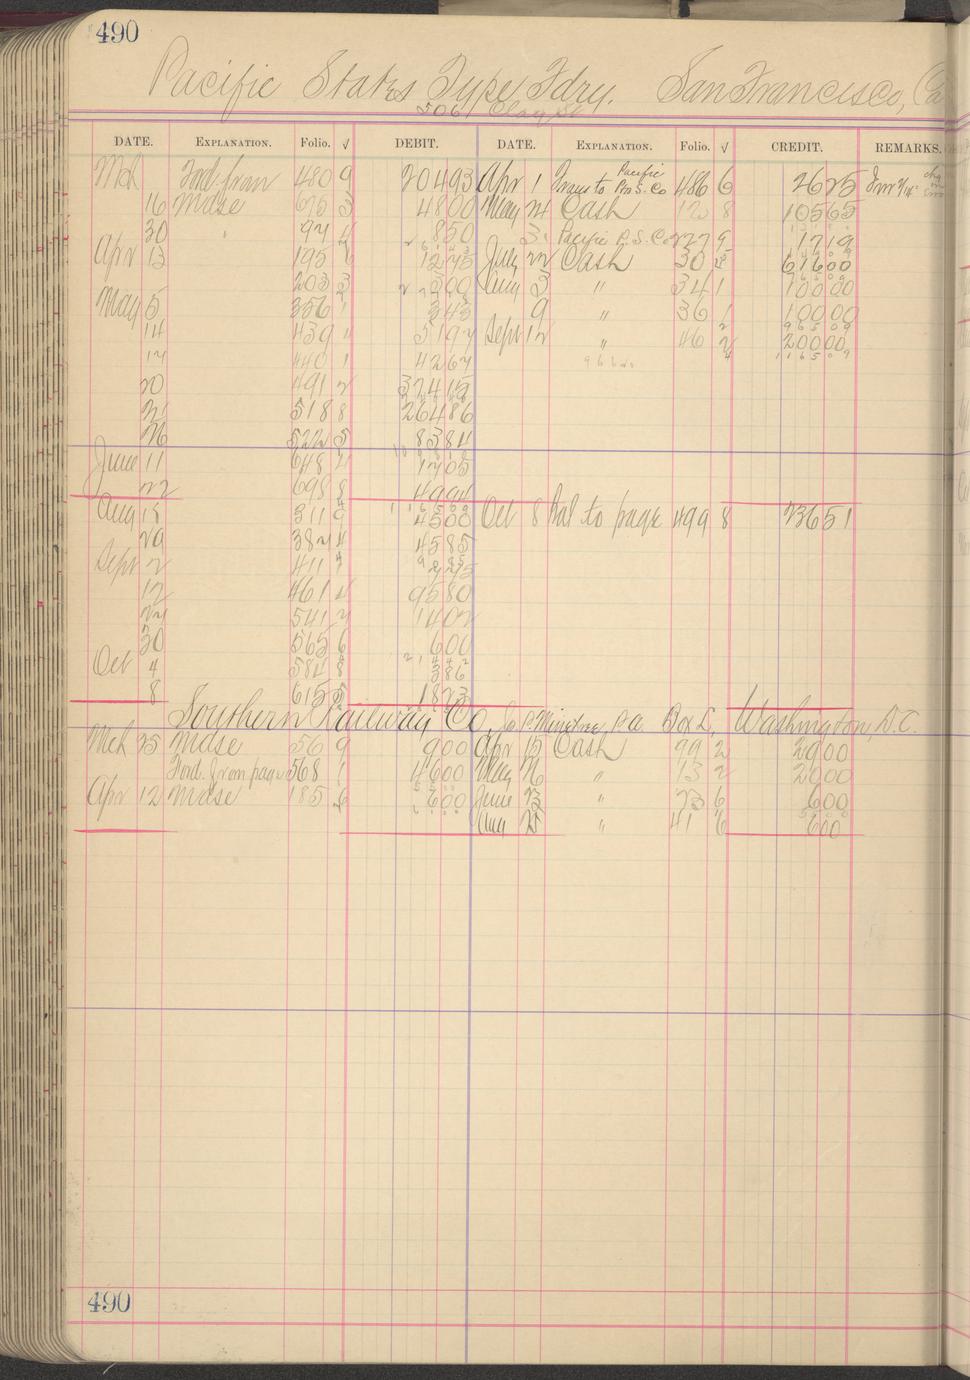 490
Pacific States Type Fdry. San Francisco, Ca
506 Clay St
DATE. EXPLANATION. Folio. √ DEBIT. DATE. EXPLANATION. Folio. √ CREDIT. REMARKS.
Mch Ford. from 480 9 20493 Apr 1 Trans to Pacific Pm S. Co 486 6 2625
16 Mdse 675 3 4800 May 24 Cash 12 8 10565
30 " 94 4 850 31 Pacific P. S. Co 227 9 1719
Apr 13 195 6 1275 July 22 Cash 30 5 61600
203 3 500 Aug 3 " 34 1 10000
May 5 356 1 343 9 " 36 1 10000
14 439 4 5197 Sept 12 " 46 2 20000
17 440 1 4267
20 491 2 37415
21 518 8 26486
26 522 5 8384
June 11 648 4 1705
22 698 8 4994
Aug 18 311 9 4500 Oct 8 Bal to page 499 8 23651
20 382 4 4585
Sept 2 411 7
12 461 4 9580
24 541 2 1402
30 565 6 600
Oct 4 584 8 386
8 615 5 1823
Southern Railway Co, P.A. Box L, Washington, D.C.
Mch 25 Mdse 56 9 900 Apr 15 Cash 99 2 2900
Ford. from page 568 1 4600 May 26 " 13 2 2000
Apr 12 Mdse 185 6 600 June 23 " 23 6 600
Aug 25 " 41 6 600
490